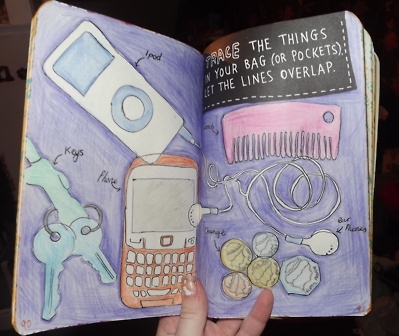 Ipod
Keys
Phone
TRACE THE THINGS
IN YOUR BAG (OR POCKETS).
LET THE LINES OVERLAP.
Change
Ear
Phones